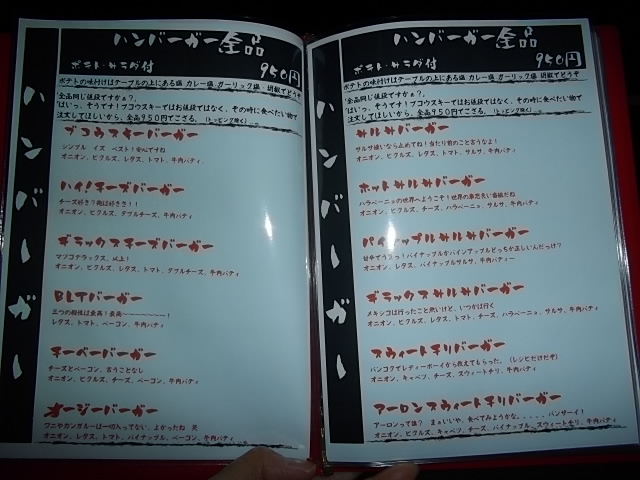 ハンバーガー
ハンバーガー全品
ポテト・サラダ付
950円
ポテトの味付けはテーブルの上にある塩 カレー塩 ガーリック塩 胡椒でどうぞ
'全品同じ値段ですかぁ?,
'はいっ、そうです!ブコウスキーではお値段ではなく、その時に食べたい物で
注文してほしいから、全品950円でござる。(トッピング除く)
ブコウスキーバーガー
シンプル イズ ベスト!安心ですね
オニオン、ピクルス、レタス、トマト、牛肉パティ.
ハイ!チーズバーガー
チーズ好き?俺は好きさ!!
オニオン、ピクルス、ダブルチーズ、牛肉パティ
デラックスチーズバーガー
マツコデラックス、以上!
オニオン、ピクルス、レタス、トマト、ダブルチーズ、牛肉パティ
BLTバーガー
三つの個性は最高!最高〜〜〜〜〜〜〜!
レタス、トマト、ベーコン、牛肉パティ
チーベーバーガー
チーズとベーコン、言うことなし
オニオン、ピクルス、チーズ、ベーコン、牛肉パティ
オージーバーガー
ワニやカンガルーは一切入ってない。よかったね 笑
オニオン、レタス、トマト、パイナップル、ベーコン、牛肉パティ
ハンバーガー
ハンバーガー全品
ポテト・サラダ付
950円
ポテトの味付けはテーブルの上にある塩 カレー塩 ガーリック塩 胡椒でどうぞ
'全品同じ値段ですかぁ?,
'はいっ、そうです!ブコウスキーではお値段ではなく、その時に食べたい物で
注文してほしいから、全品950円でござる。(トッピング除く)
サルサバーガー
サルサ嫌いなら止めてね!当たり前のこと言うなよ!
オニオン、ピクルス、レタス、トマト、サルサ、牛肉パティ
ホットサルサバーガー
ハラペーニョの世界へようこそ!世界の
オニオン、ピクルス、チーズ、ハラペーニョ、サルサ、牛肉パティ
パイナップルサルサバーガー
パイナップルかパインアップルどっちが正しいんだっけ?
オニオン、レタス、パイナップルサルサ、牛肉パティー
デラックスサルサバーガー
メキシコは行ったこと無いけど、いつかは行く
オニオン、ピクルス、レタス、トマト、チーズ、ハラペーニョ、サルサ、牛肉パティ
スウィートチリバーガー
バンコクでレディーボーイから教えてもらった。(レシピだけだぞ)
オニオン、キャベツ、チーズ、スウィートチリ、牛肉パティ
アーロンスウィートチリバーガー
アーロンって誰? まぁいいや、食べてみようかな。. . . . . バンザーイ!
オニオン、ピクルス、キャベツ、チーズ、パイナップル、スウィートチリ、牛肉パティ